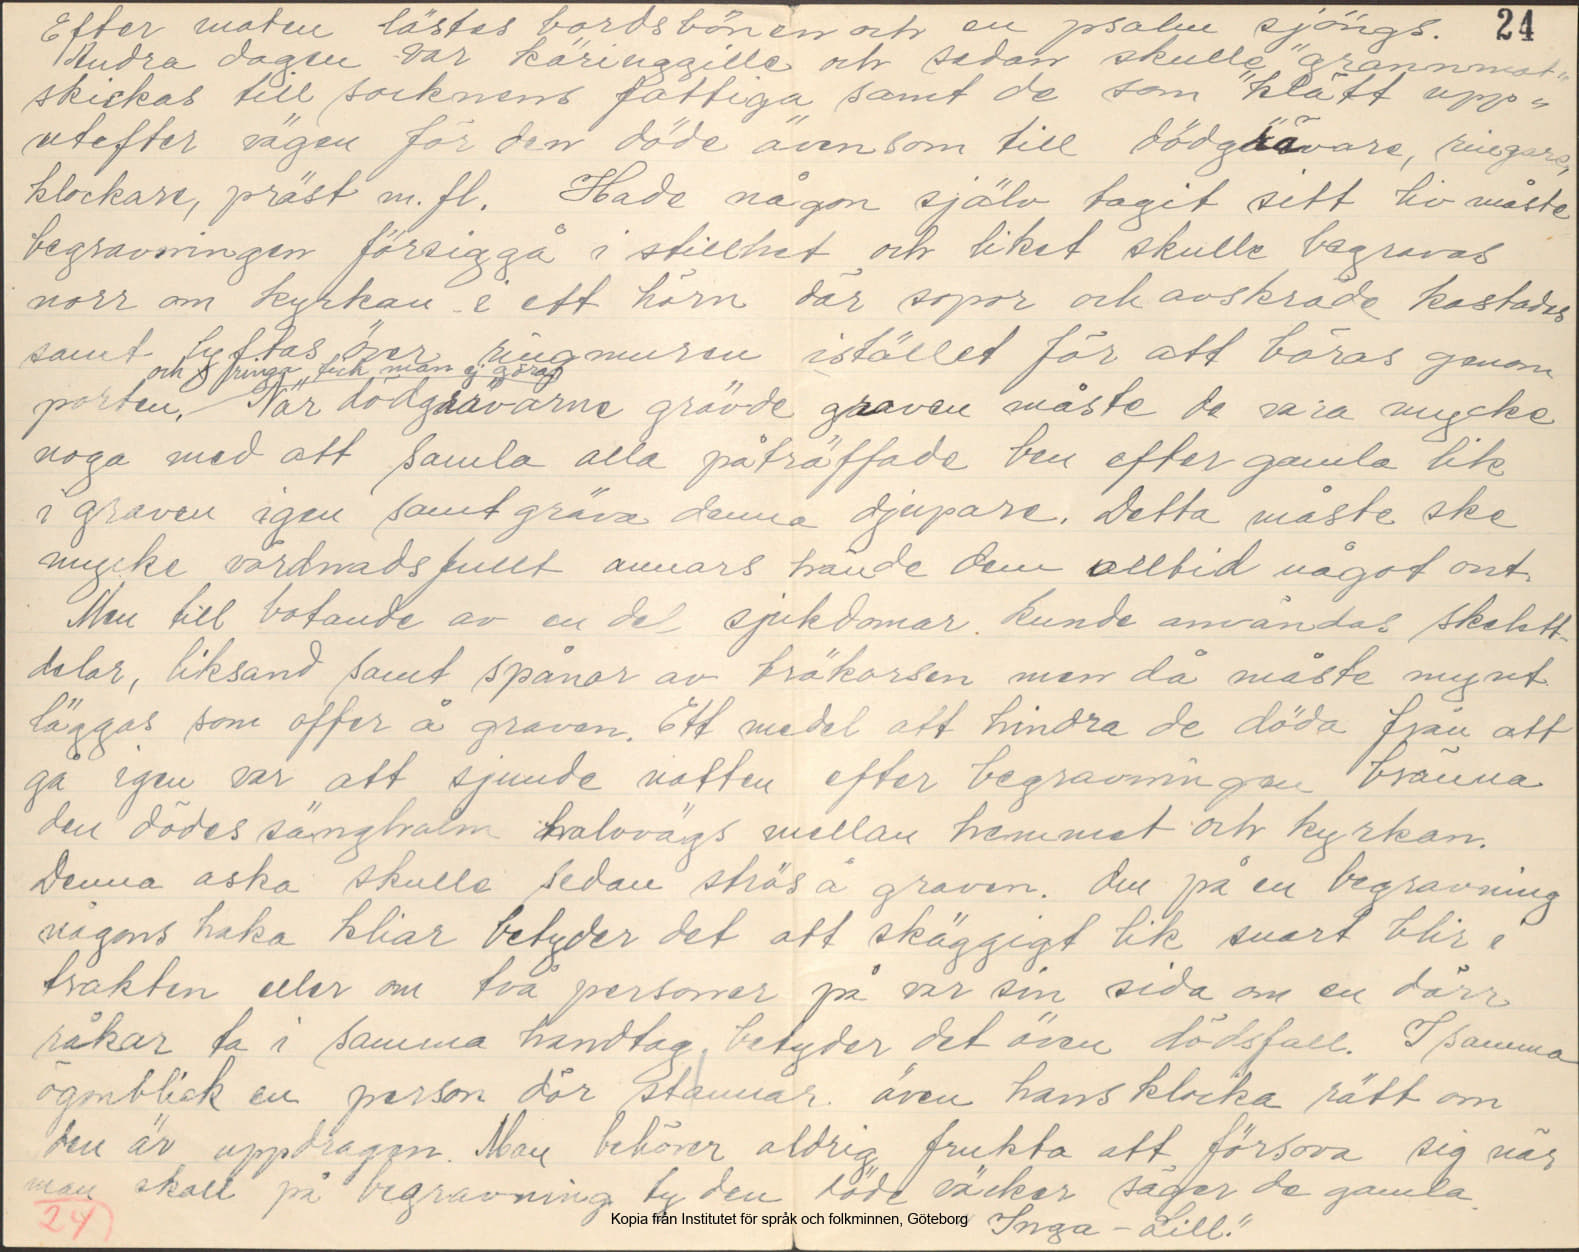 Efter maten lästes bordsbönen och en psalm sjöngs. 24
Andra dagen var käringgille och sedan skulle "grannmat"
skickas till socknens fattiga samt de som "klätt upp"
utefter vägen för den döde ävensom till dödgrävare, ringare,
klockare, präst m. fl. Hade någon själv tagit sitt liv måste
begravningen försiggå i stillhet och liket skulle begravas
norr om kyrkan i ett hörn där sopor och avskräde kastades
samt lyftas över ringmuren istället för att bäras genom
och ringa fick man ej göra
porten. När dödgrävarne grävde graven måste de vara mycke
noga med att samla alla påträffade ben efter gamla lik
i graven igen samt gräva denna djupare. Detta måste ske
mycke vördnadsfullt annars hände dem alltid något ont.
Men till botande av en del sjukdomar kunde användas skelett-
delar, liksand samt spånor av träkorsen men då måste mynt
läggas som offer å graven. Ett medel att hindra de döda från att
gå igen var att sjunde natten efter begravningen bränna
den dödes sänghalm halvvägs mellan hemmet och kyrkan.
Denna aska skulle sedan strös å graven. Om på en begravning
någons haka kliar betyder det att skäggigt lik snart blir i
trakten eller om två personer på var sin sida om en dörr
råkar ta i samma handtag, betyder det även dödsfall. I samma
ögonblick en person dör stannar även hans klocka rätt om
den är uppdragen. Man behöver aldrig frukta att försova sig när
man skall på begravning ty den döde väcker säger de gamla.
24)
"Inga-Lill."
Kopia från Institutet för språk och folkminnen, Göteborg